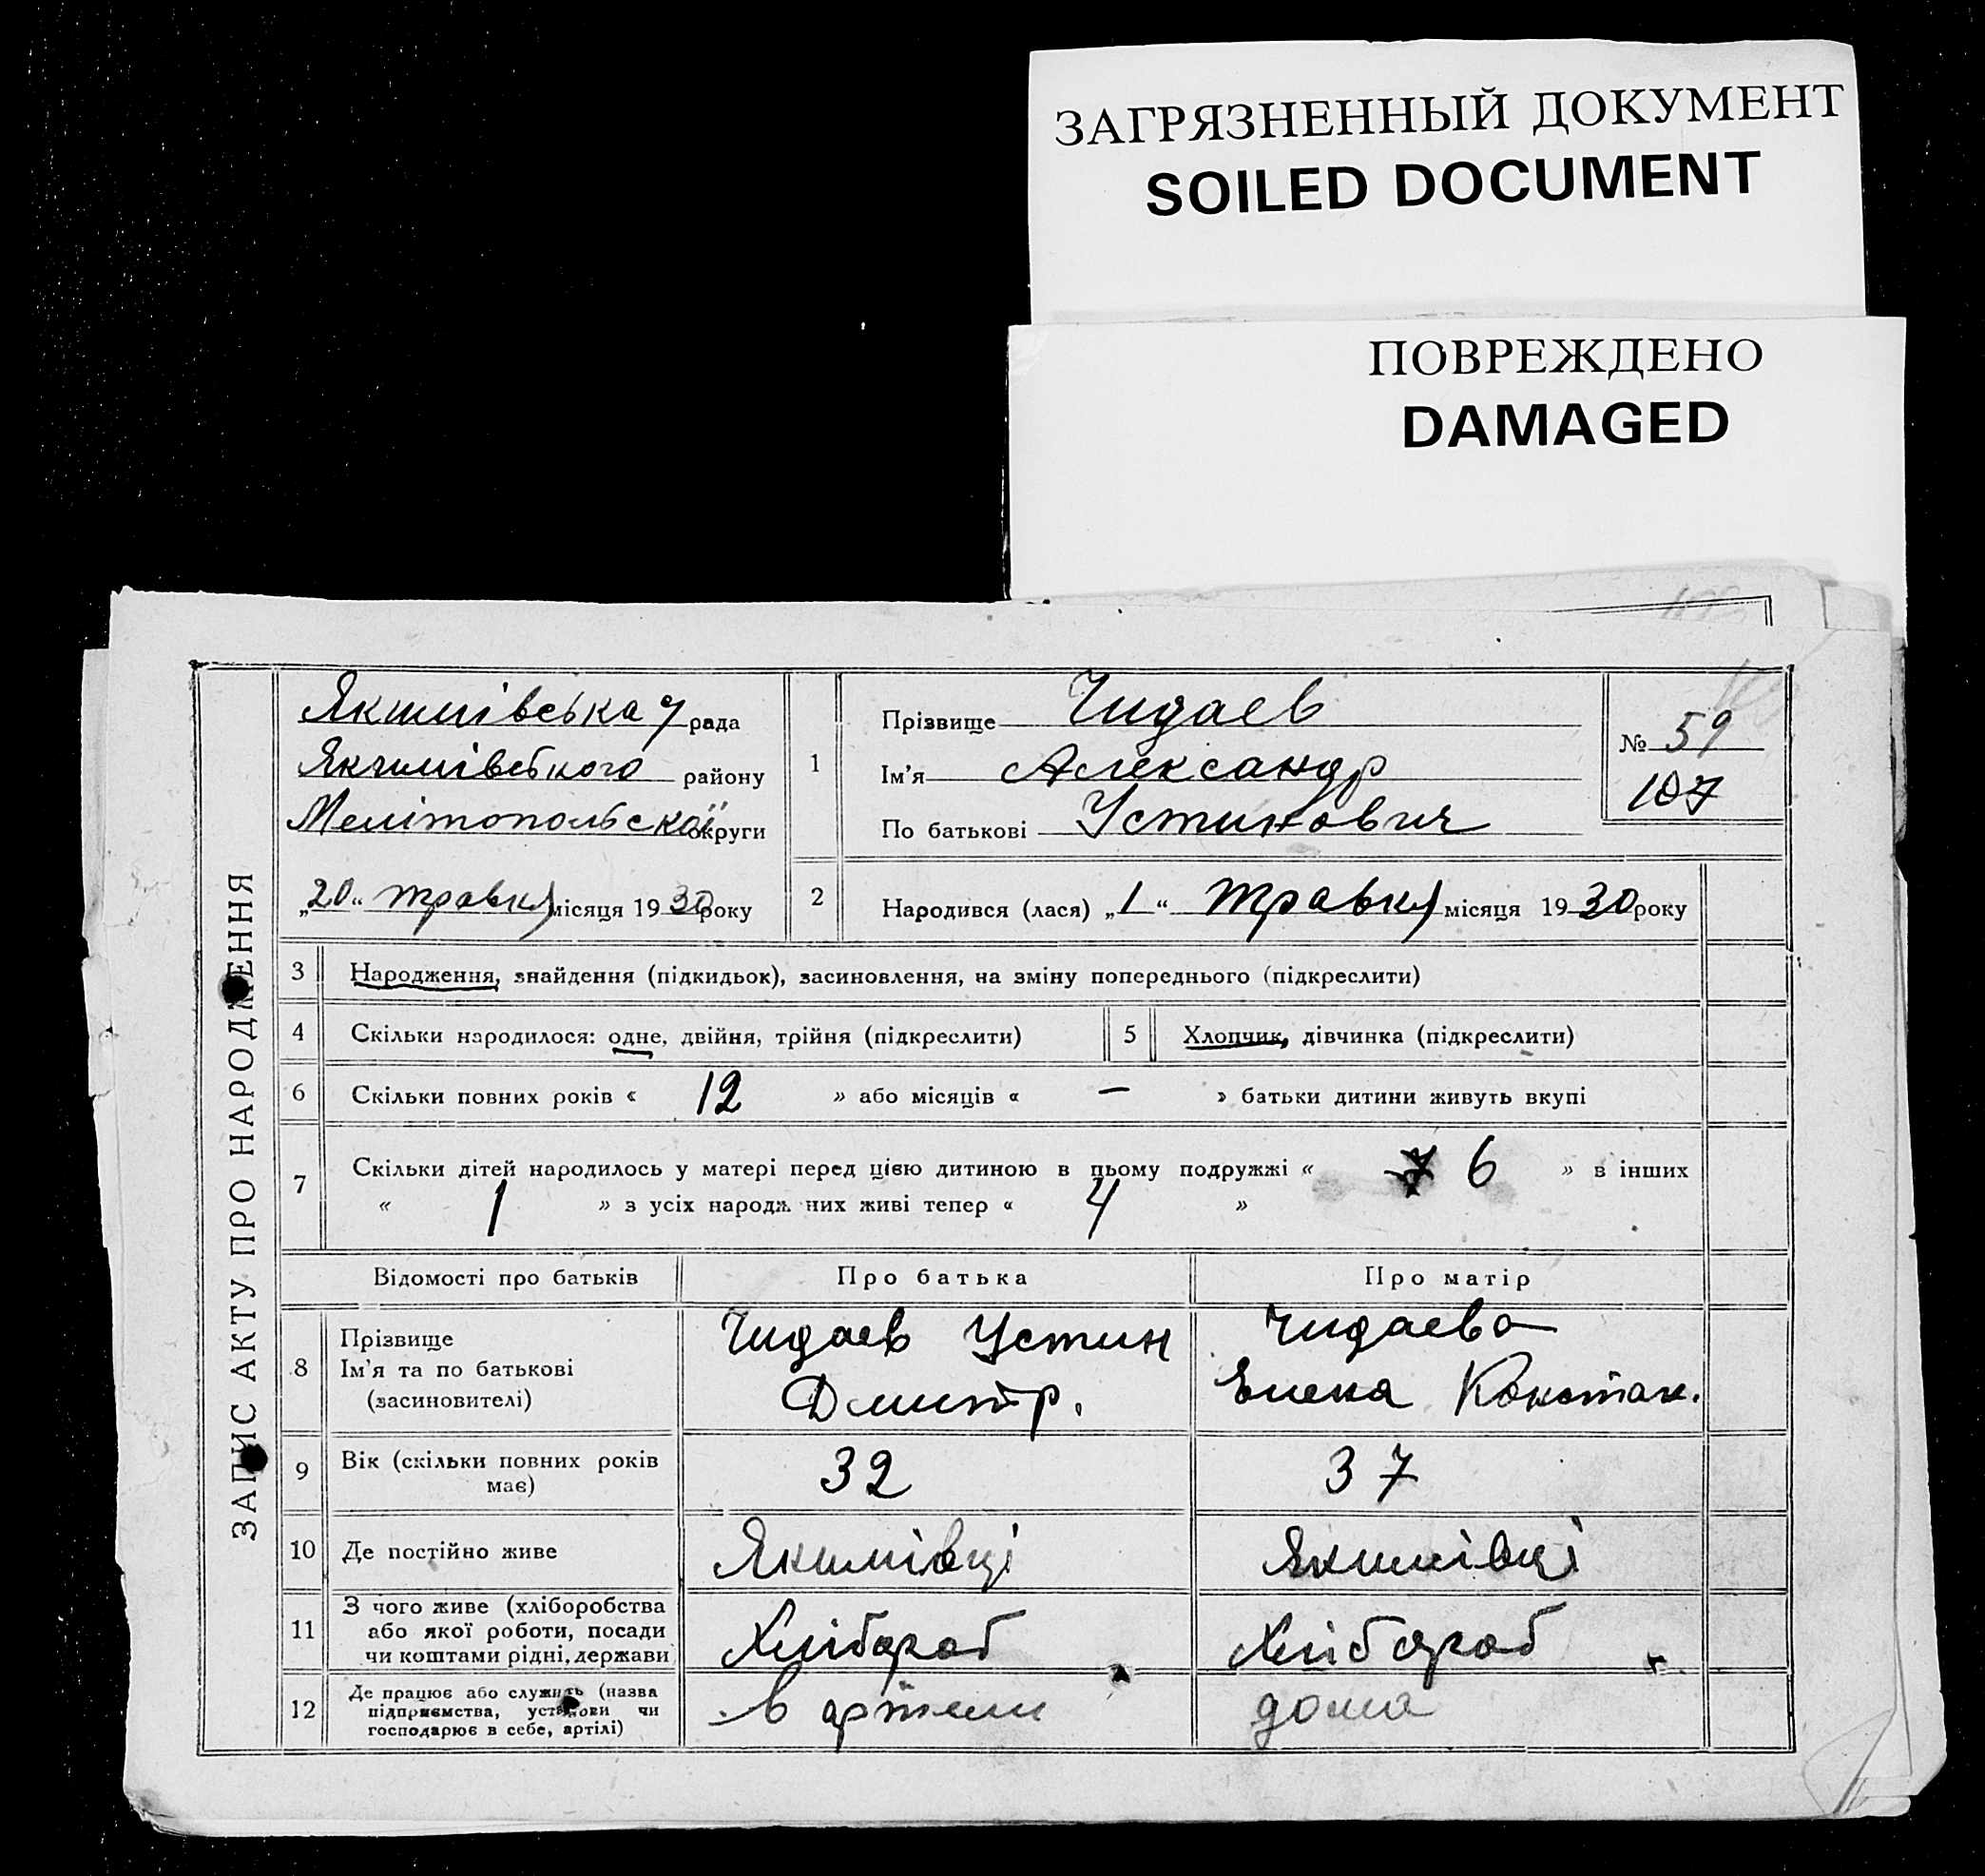 ЗАГРЯЗНЕННЫЙ ДОКУМЕНТ
SOILED DOCUMENT
ПОВРЕЖДЕНО
DAMAGED
ЗАПИС АКТУ ПРО НАРОДЖЕННЯ
Якимівська рада
Якимівського району
Мелітопольскої округи
„20“ травня місяця 1930 року
1
Прізвище Чидаев
Ім'я Александр
По батькові Устинович
№ 59
107
2
Народився (лася) „1“ травня місяця 1930 року
3 Народження, знайдення (підкидьок), засиновлення, на зміну попереднього (підкреслити)
4 Скільки народилося: одне, двійня, трійня (підкреслити) 5 Хлопчик, дівчинка (підкреслити)
6 Скільки повних років « 12 » або місяців « — » батьки дитини живуть вкупі
7 Скільки дітей народилось у матері перед цією дитиною в цьому подружжі « 7 6 » в інших
« 1 » з усіх народж них живі тепер « 4 »
Відомості про батьків Про батька Про матір
8 Прізвище
Ім'я та по батькові
(засиновителі)
Чидаев Устин
Дмитр.
Чидаева
Елена Констан.
9 Вік (скільки повних років
має)
32 37
10 Де постійно живе Якимівці Якимівці
11 З чого живе (хліборобства
або якої роботи, посади
чи коштами рідні, держави
Хлібороб Хлібороб
12 Де працює або служить (назва
підприємства, установи чи
господарює в себе, артілі)
в артели дома